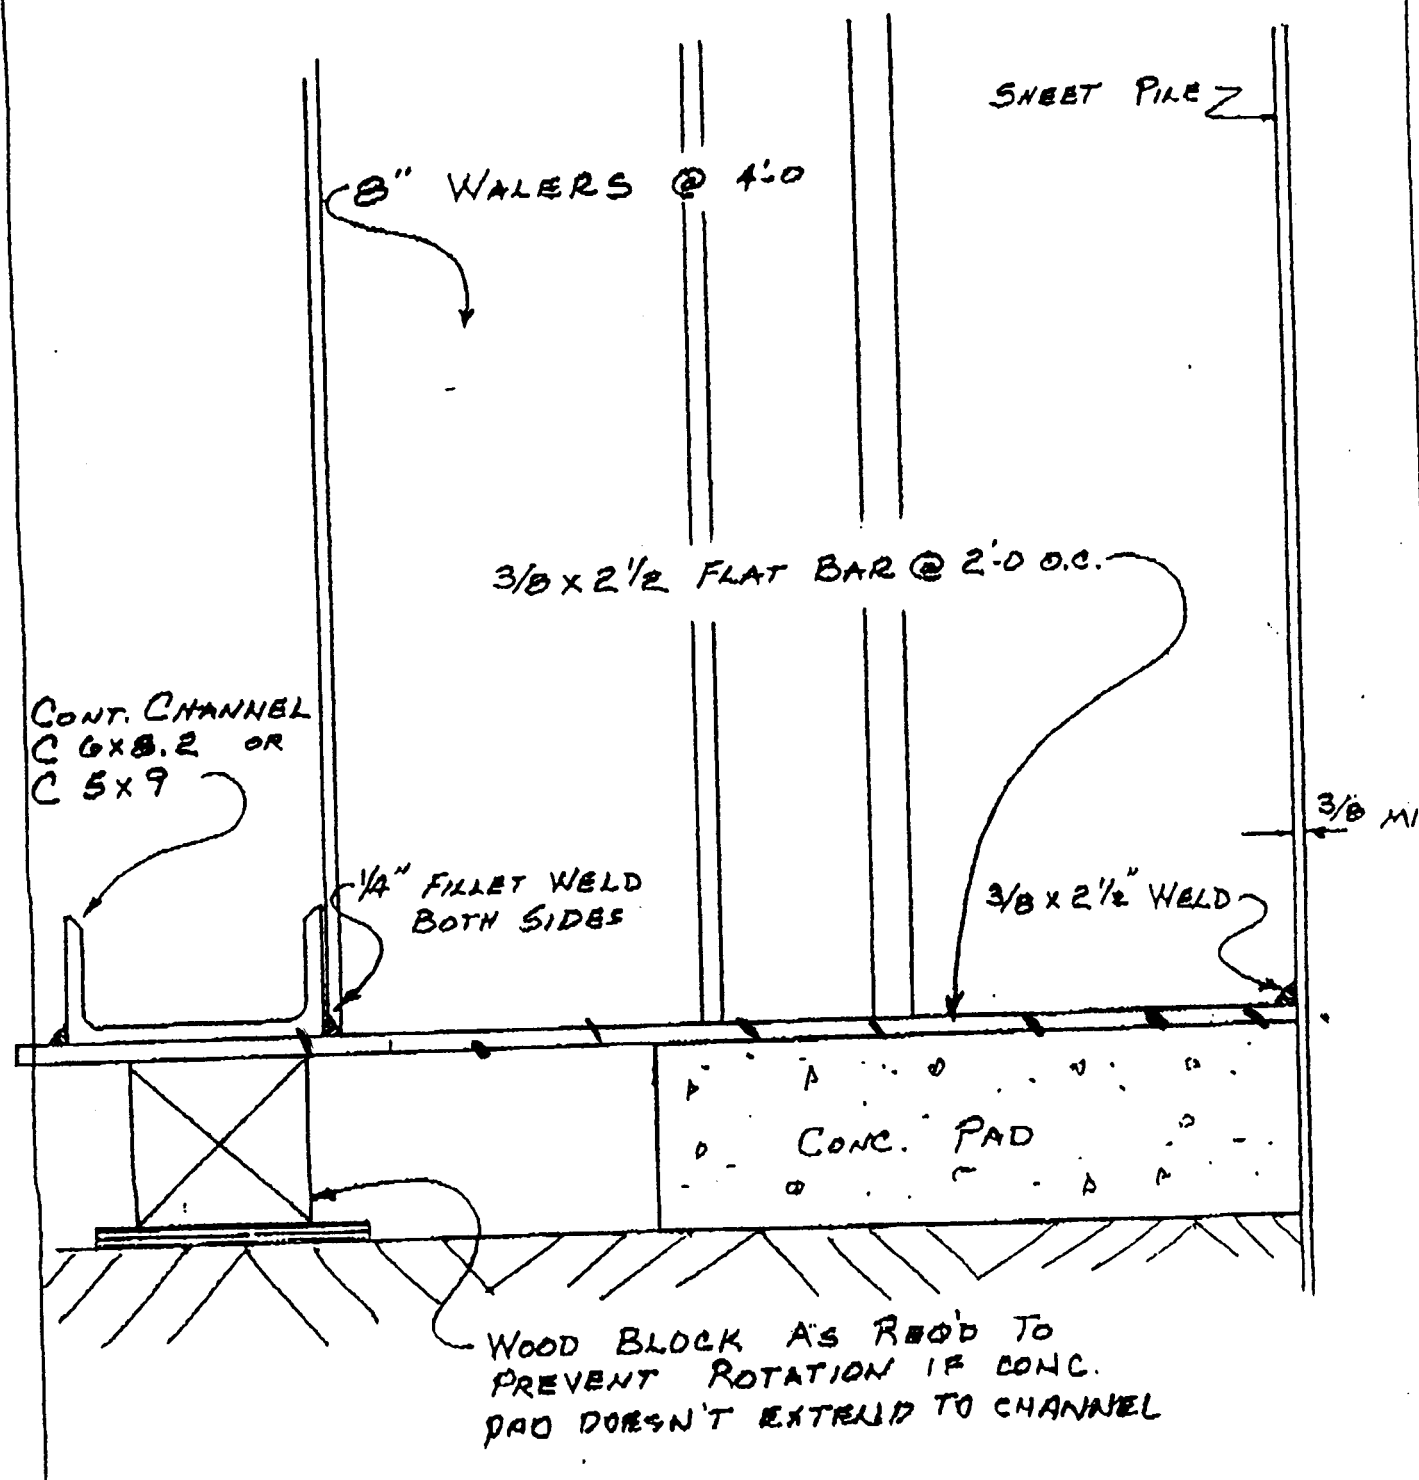 SHEET PILE
8" WALERS @ 4'-0
3/8 x 2 1/2 FLAT BAR @ 2'-0 O.C.
CONT. CHANNEL
C 6x8.2 OR
C 5x9
3/8 MI
1/4" FILLET WELD
BOTH SIDES
3/8 x 2 1/2" WELD
CONC. PAD
WOOD BLOCK AS REQ'D TO
PREVENT ROTATION IF CONC.
PAD DOESN'T EXTEND TO CHANNEL